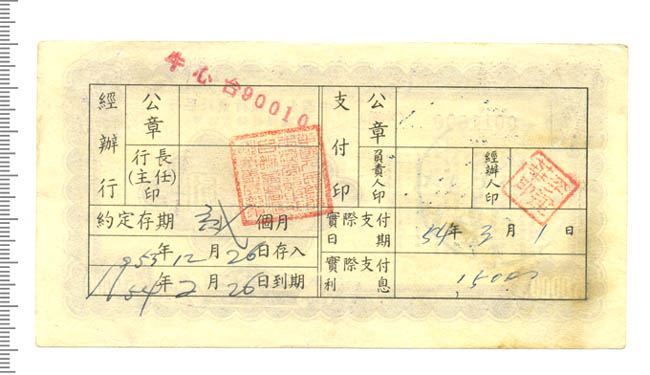 牛心台90010
經辦行
公章
行長
(主任)
印
約定存期 貳 個月
1953年12月26日存入
1954年2月26日到期
支付印
公章
負責人印
經辦人印
實際支付
日期
54年3月1日
實際支付
利息